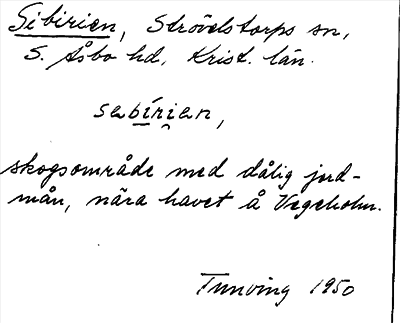 Sibirien, Strövelstorps sn,
S. Åsbo hd, Krist. län.
sebírien,
skogsområde med dålig jord-
mån, nära havet å Vegeholm.
Tunving 1950